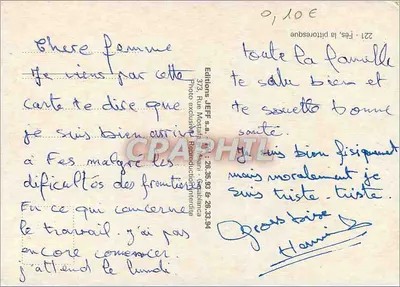 0,10€
221 - Fès, la pittoresque
Chere femme
Je viens par cette
carte te dire que
je suis bien arrivé
a Fes malgré les
dificaltés des frontières
En ce qui concerne
le travail. j'ai pas
encore comencer.
j'attend le lundi
Editions JEFF s.a. - Tél : 26.35.93 & 26.33.94
373, Rue Mostafa El Maani - Casablanca
Photo exclusive - Reproduction interdite
CPARAMA
toute la famille
te salu bien et
te souette bonne
santé.
Je suis bien fisiquement
mais moralement je
suis triste. triste.
Gross bise